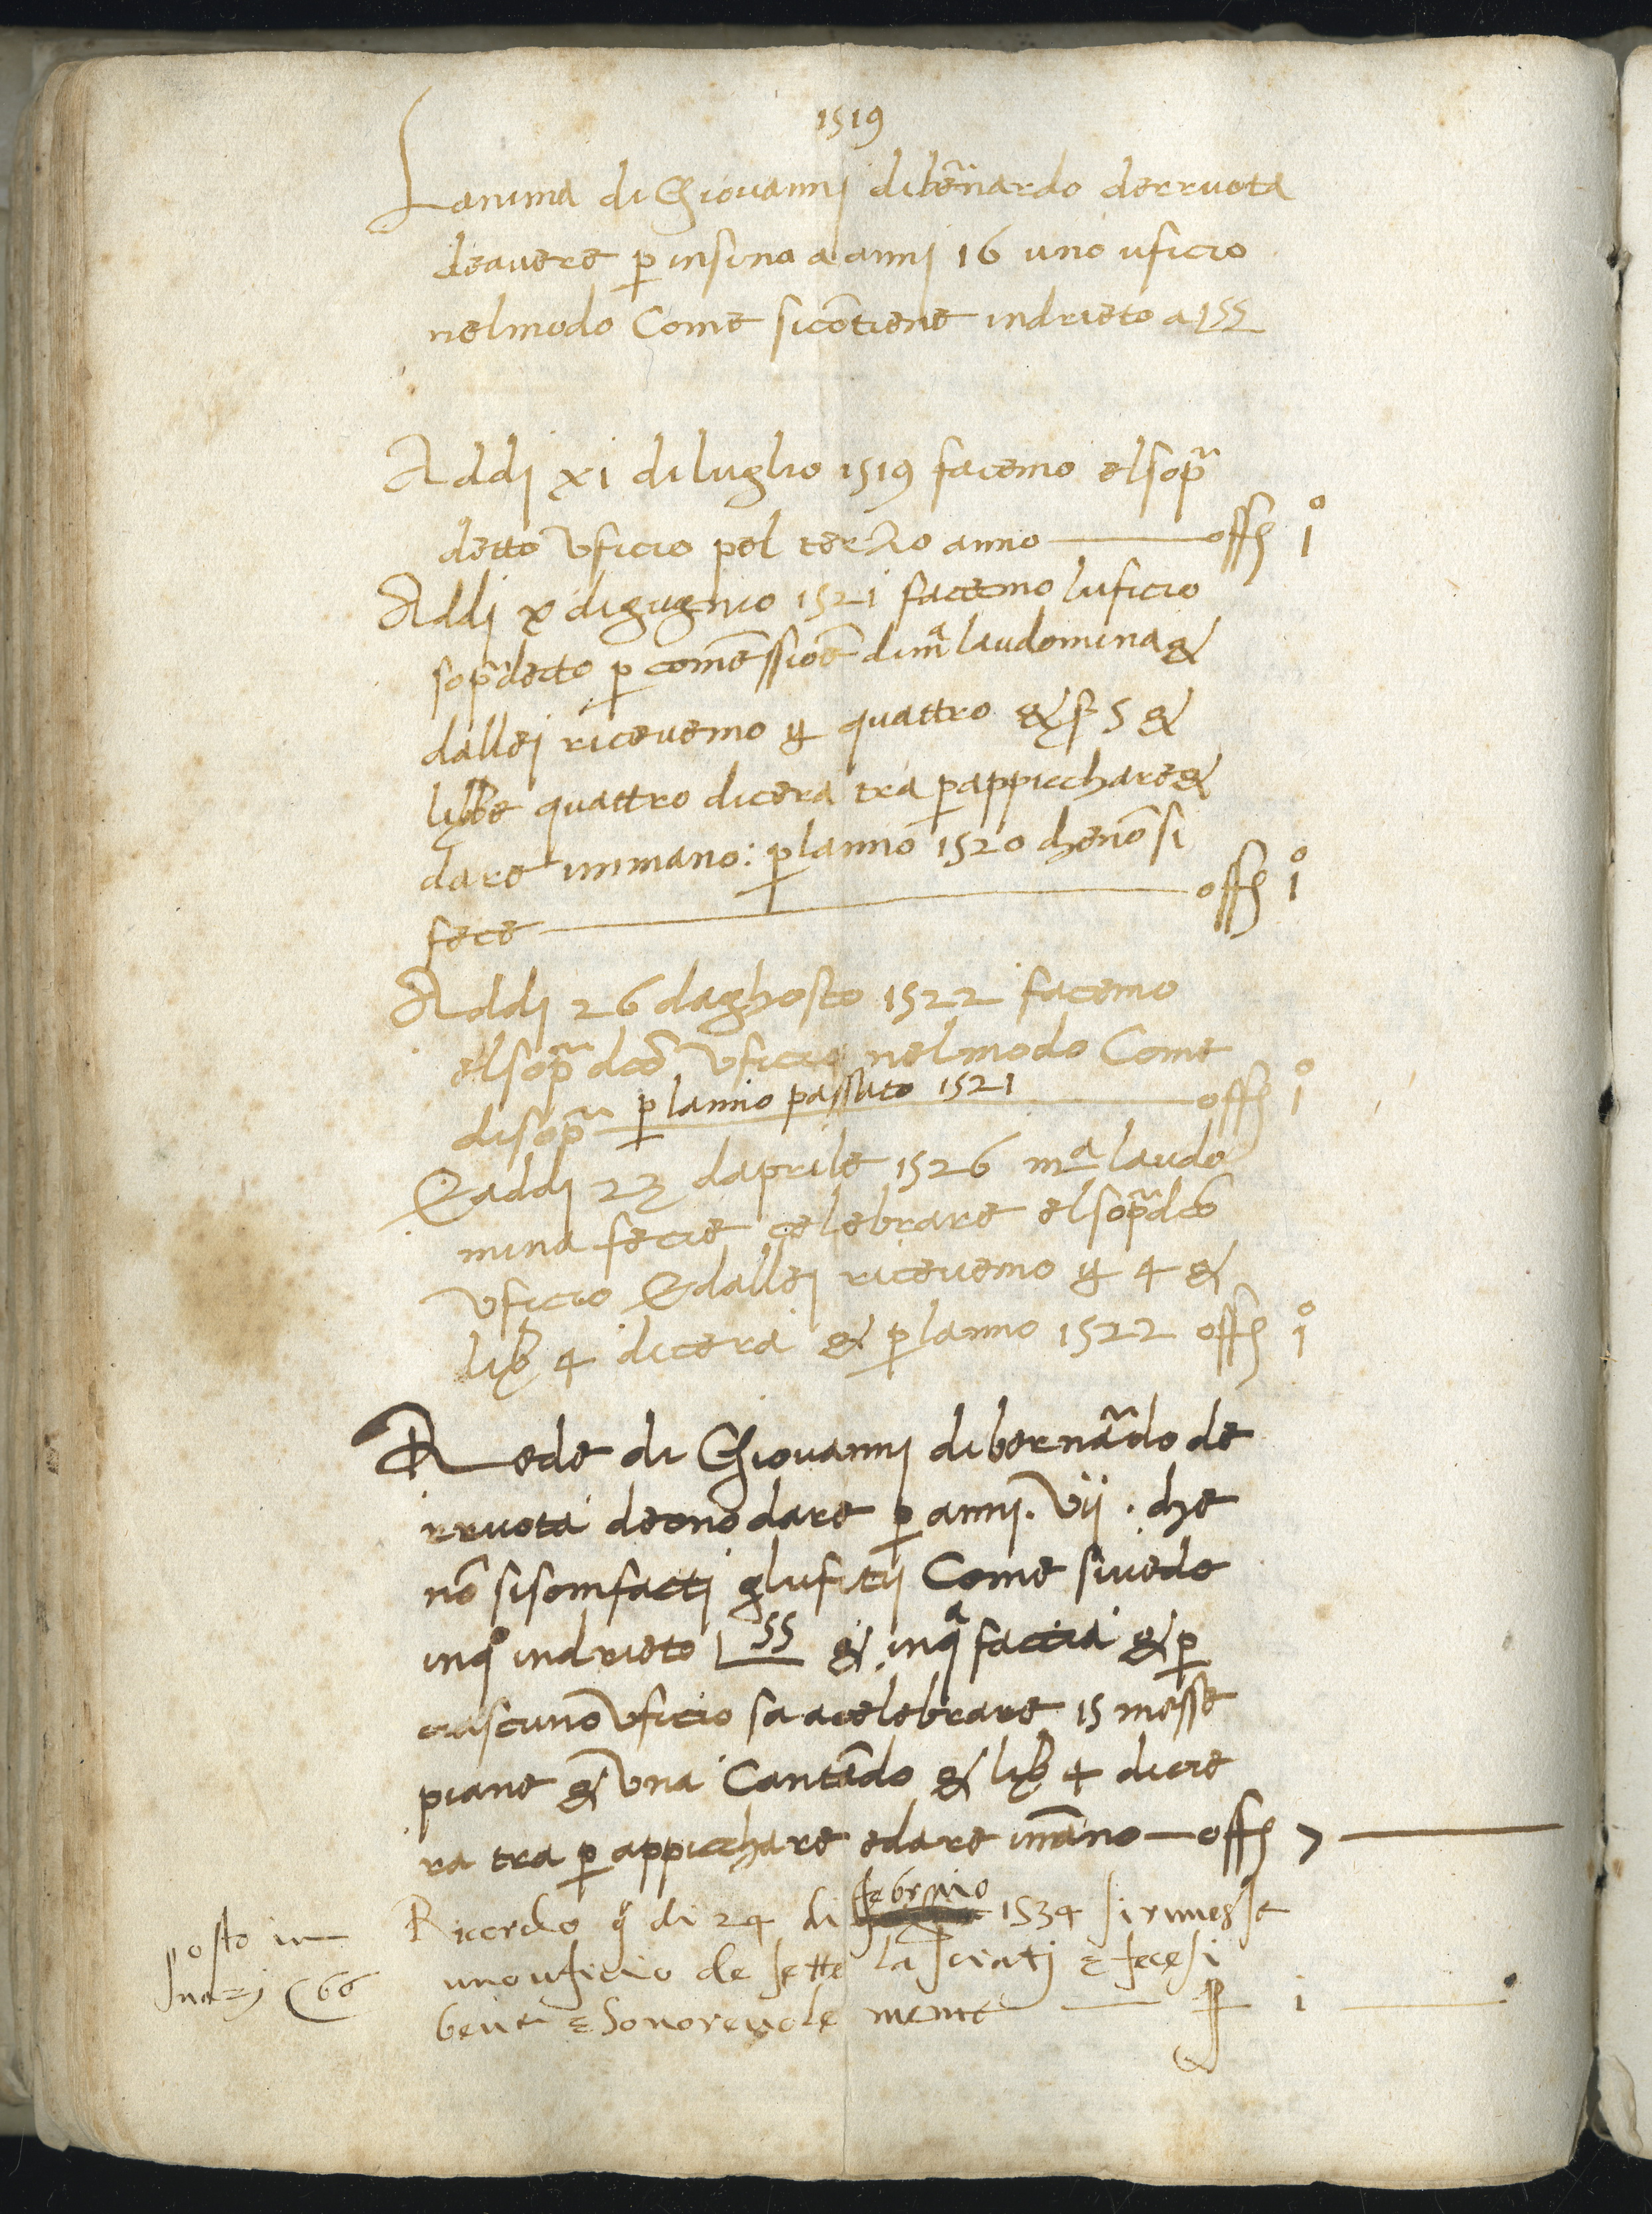 1519
Lanima di Giovannj dibernardo derruota
deavere p insina a annj 16 uno uficio
nelmodo Come sicōtiene indrieto a 155
Addj xi di luglio 1519 facemo elsop̃
detto Vficio pel terzo anno — offj i°
Addj x digugnio 1521 facemo luficio
sop̃detto p comēssiōe di mª laudomina &
dallej ricevemo quattro & s 5 &
libbe quattro dicera tra p appicchare &
dare inmano: p lanno 1520 che nō si
fece — offj i°
Addj 26 daghosto 1522 facemo
elsop̃ dco Vficio nelmodo Come
disop̃ p lanno passato 1521 — offj i°
Eaddj 23 daprile 1526 mª laudo
mina fecie celebrare elsop̃dco
Vficio & dallej ricevemo 4 &
lib 4 dicera & p lanno 1522 offj i°
Rede di Giovannj dibernādo de
rruota deono dare p annj . vij . che
nō sisom factj glufitij Come siuede
inqº indrieto 155 & inqª faccia & p
ciascuno Vficio sa acelebrare 15 messe
piane & Vna Cantādo & lib 4 dicie
ra tra p appicchare edare imāno — offj 7 —
Ricordo q di 24 di febraio 1534 si rimesse
uno uficio de sette lasciatj e fecesi
bene e honorevole mente — i —
posto in
c 66